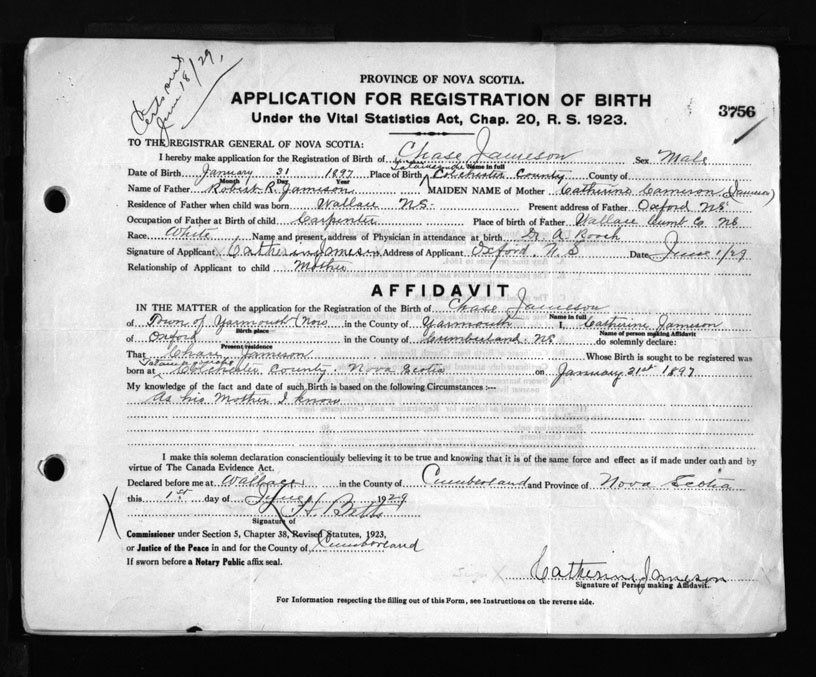 June 18/29,
PROVINCE OF NOVA SCOTIA.
APPLICATION FOR REGISTRATION OF BIRTH
3756
Under the Vital Statistics Act, Chap. 20, R. S. 1923.
TO THE REGISTRAR GENERAL OF NOVA SCOTIA:
I hereby make application for the Registration of Birth of Chase Jameson Sex Male
Name in full
Date of Birth January 31 1897 Place of Birth Colchester County County of
Month Day Year
Name of Father Robert R. Jamieson MAIDEN NAME of Mother Catherine Cameron (Jameson)
Residence of Father when child was born Wallace NS. Present address of Father Oxford NS
Occupation of Father at Birth of child Carpenter Place of birth of Father Wallace Cumb Co NS
Race White Name and present address of Physician in attendance at birth A Roach
Signature of Applicant Catherine Jameson Address of Applicant Oxford. N. S Date June 1/29
Relationship of Applicant to child Mother
AFFIDAVIT
IN THE MATTER of the application for the Registration of the Birth of Chase Jameson
Name in full
of Town of Yarmouth in the County of Yarmouth I, Catherine Jameson
Birth place Name of person making Affidavit
of Oxford in the County of Cumberland NS do solemnly declare:
Present residence
That Chase Jameson Whose Birth is sought to be registered was
born at Colchester County. Nova Scotia on January 31st 1897
My knowledge of the fact and date of such Birth is based on the following Circumstances :—
As his Mother I know
I make this solemn declaration conscientiously believing it to be true and knowing that it is of the same force and effect as if made under oath and by
virtue of The Canada Evidence Act.
Declared before me at Wallace in the County of Cumberland and Province of Nova Scotia
this 1st day of June 1929
H. Batts
Signature of
X
Commissioner under Section 5, Chapter 38, Revised Statutes, 1923,
or Justice of the Peace in and for the County of Cumberland
If sworn before a Notary Public affix seal.
Catherine Jameson
Signature of Person making Affidavit.
For Information respecting the filling out of this Form, see Instructions on the reverse side.